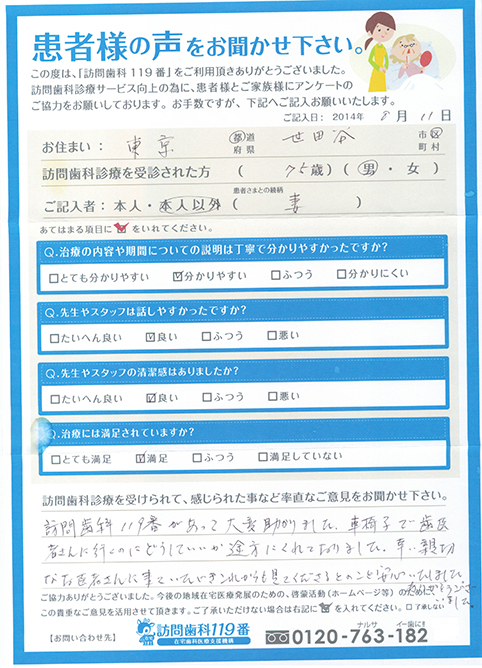 患者様の声をお聞かせ下さい。
この度は、「訪問歯科119番」をご利用頂きありがとうございました。
訪問歯科診療サービス向上の為に、患者様とご家族様にアンケートの
ご協力をお願いしております。お手数ですが、下記へご記入お願いいたします。
ご記入日: 2014年 8月 11日
お住まい: 東京 都道府県 世田谷 市区町村
訪問歯科診療を受診された方 ( 75歳) (男・女)
患者さまとの続柄
ご記入者:本人・本人以外 ( 妻 )
あてはまる項目に をいれてください。
Q.治療の内容や期間についての説明は丁寧で分かりやすかったですか?
□とても分かりやすい ☑分かりやすい □ふつう □分かりにくい
Q.先生やスタッフは話しやすかったですか?
□たいへん良い ☑良い □ふつう □悪い
Q.先生やスタッフの清潔感はありましたか?
□たいへん良い ☑良い □ふつう □悪い
Q.治療には満足されていますか?
□とても満足 ☑満足 □ふつう □満足していない
訪問歯科診療を受けられて、感じられた事など率直なご意見をお聞かせ下さい。
訪問歯科119番があって大変助かりました。車椅子で歯医
者さんに行くのにどうしていいか途方にくれておりました。幸い親切
なお医者さんに来ていただきこれからも見てくださるとのことで安心いたしました。
ありがとうござ
いました。
ご協力ありがとうございました。今後の地域在宅医療発展のため、啓蒙活動(ホームページ等)のために
この貴重なご意見を活用させて頂きます。ご了承いただけない場合は右記に を入れてください。□了承しない
【お問い合わせ先】
訪問歯科119番
在宅歯科医療支援機構
ナルサ イー歯に!!
0120-763-182